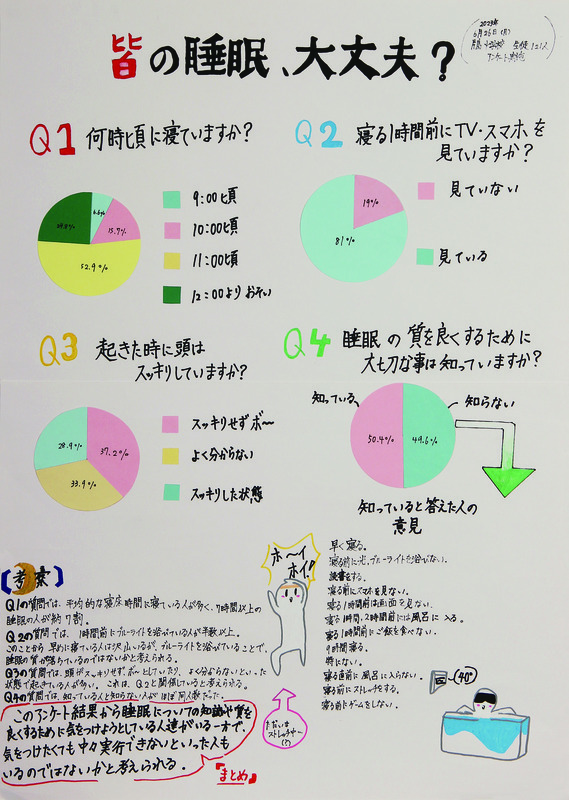 皆の睡眠、大丈夫？
2023年
6月26日(月)
生徒121人
アンケート
Q1 何時頃に寝ていますか？
6.6%
15.7%
52.9%
9:00頃
10:00頃
11:00頃
12:00よりおそい
Q2 寝る1時間前にTV・スマホを
見ていますか？
19%
81%
見ていない
見ている
Q3 起きた時に頭は
スッキリしていますか？
28.9%
37.2%
33.9%
スッキリせずボ〜
よく分からない
スッキリした状態
Q4 睡眠の質を良くするために
大切な事は知っていますか？
知っている
知らない
50.4%
49.6%
知っていると答えた人の
意見
早く寝る。
寝る前に光、ブルーライトを浴びない。
読書をする。
寝る前にスマホを見ない。
寝る1時間前は画面を見ない。
寝る1時間・2時間前には風呂に入る。
寝る1時間前にご飯を食べない。
9時間寝る。
特にない。
寝る直前に風呂に入らない。
寝る前にストレッチをする。
寝る前にゲームをしない。
ホ〜イ
ホイ!
40°
ただいま
ストレッチャー
(?)
【考察】
Q1の質問では、平均的な寝床時間に寝ている人が多く、7時間以上の
睡眠の人が約7割。
Q2の質問では、1時間前にブルーライトを浴びている人が半数以上。
このことから早めに寝ている人は沢山いるが、ブルーライトを浴びていることで、
睡眠の質が落ちているのではないかと考えられる。
Q3の質問では、頭がスッキリせずボーとしていたり、よく分からないといった
状態で起きている人が多い。これはQ2と関係していると考えられる。
Q4の質問では、知っている人と知らない人がほぼ同人数だった。
このアンケート結果から睡眠についての知識や質を
良くするために気をつけようとしている人達がいる一方で、
気をつけたくても中々実行できないといった人も
いるのではないかと考えられる。
『まとめ』